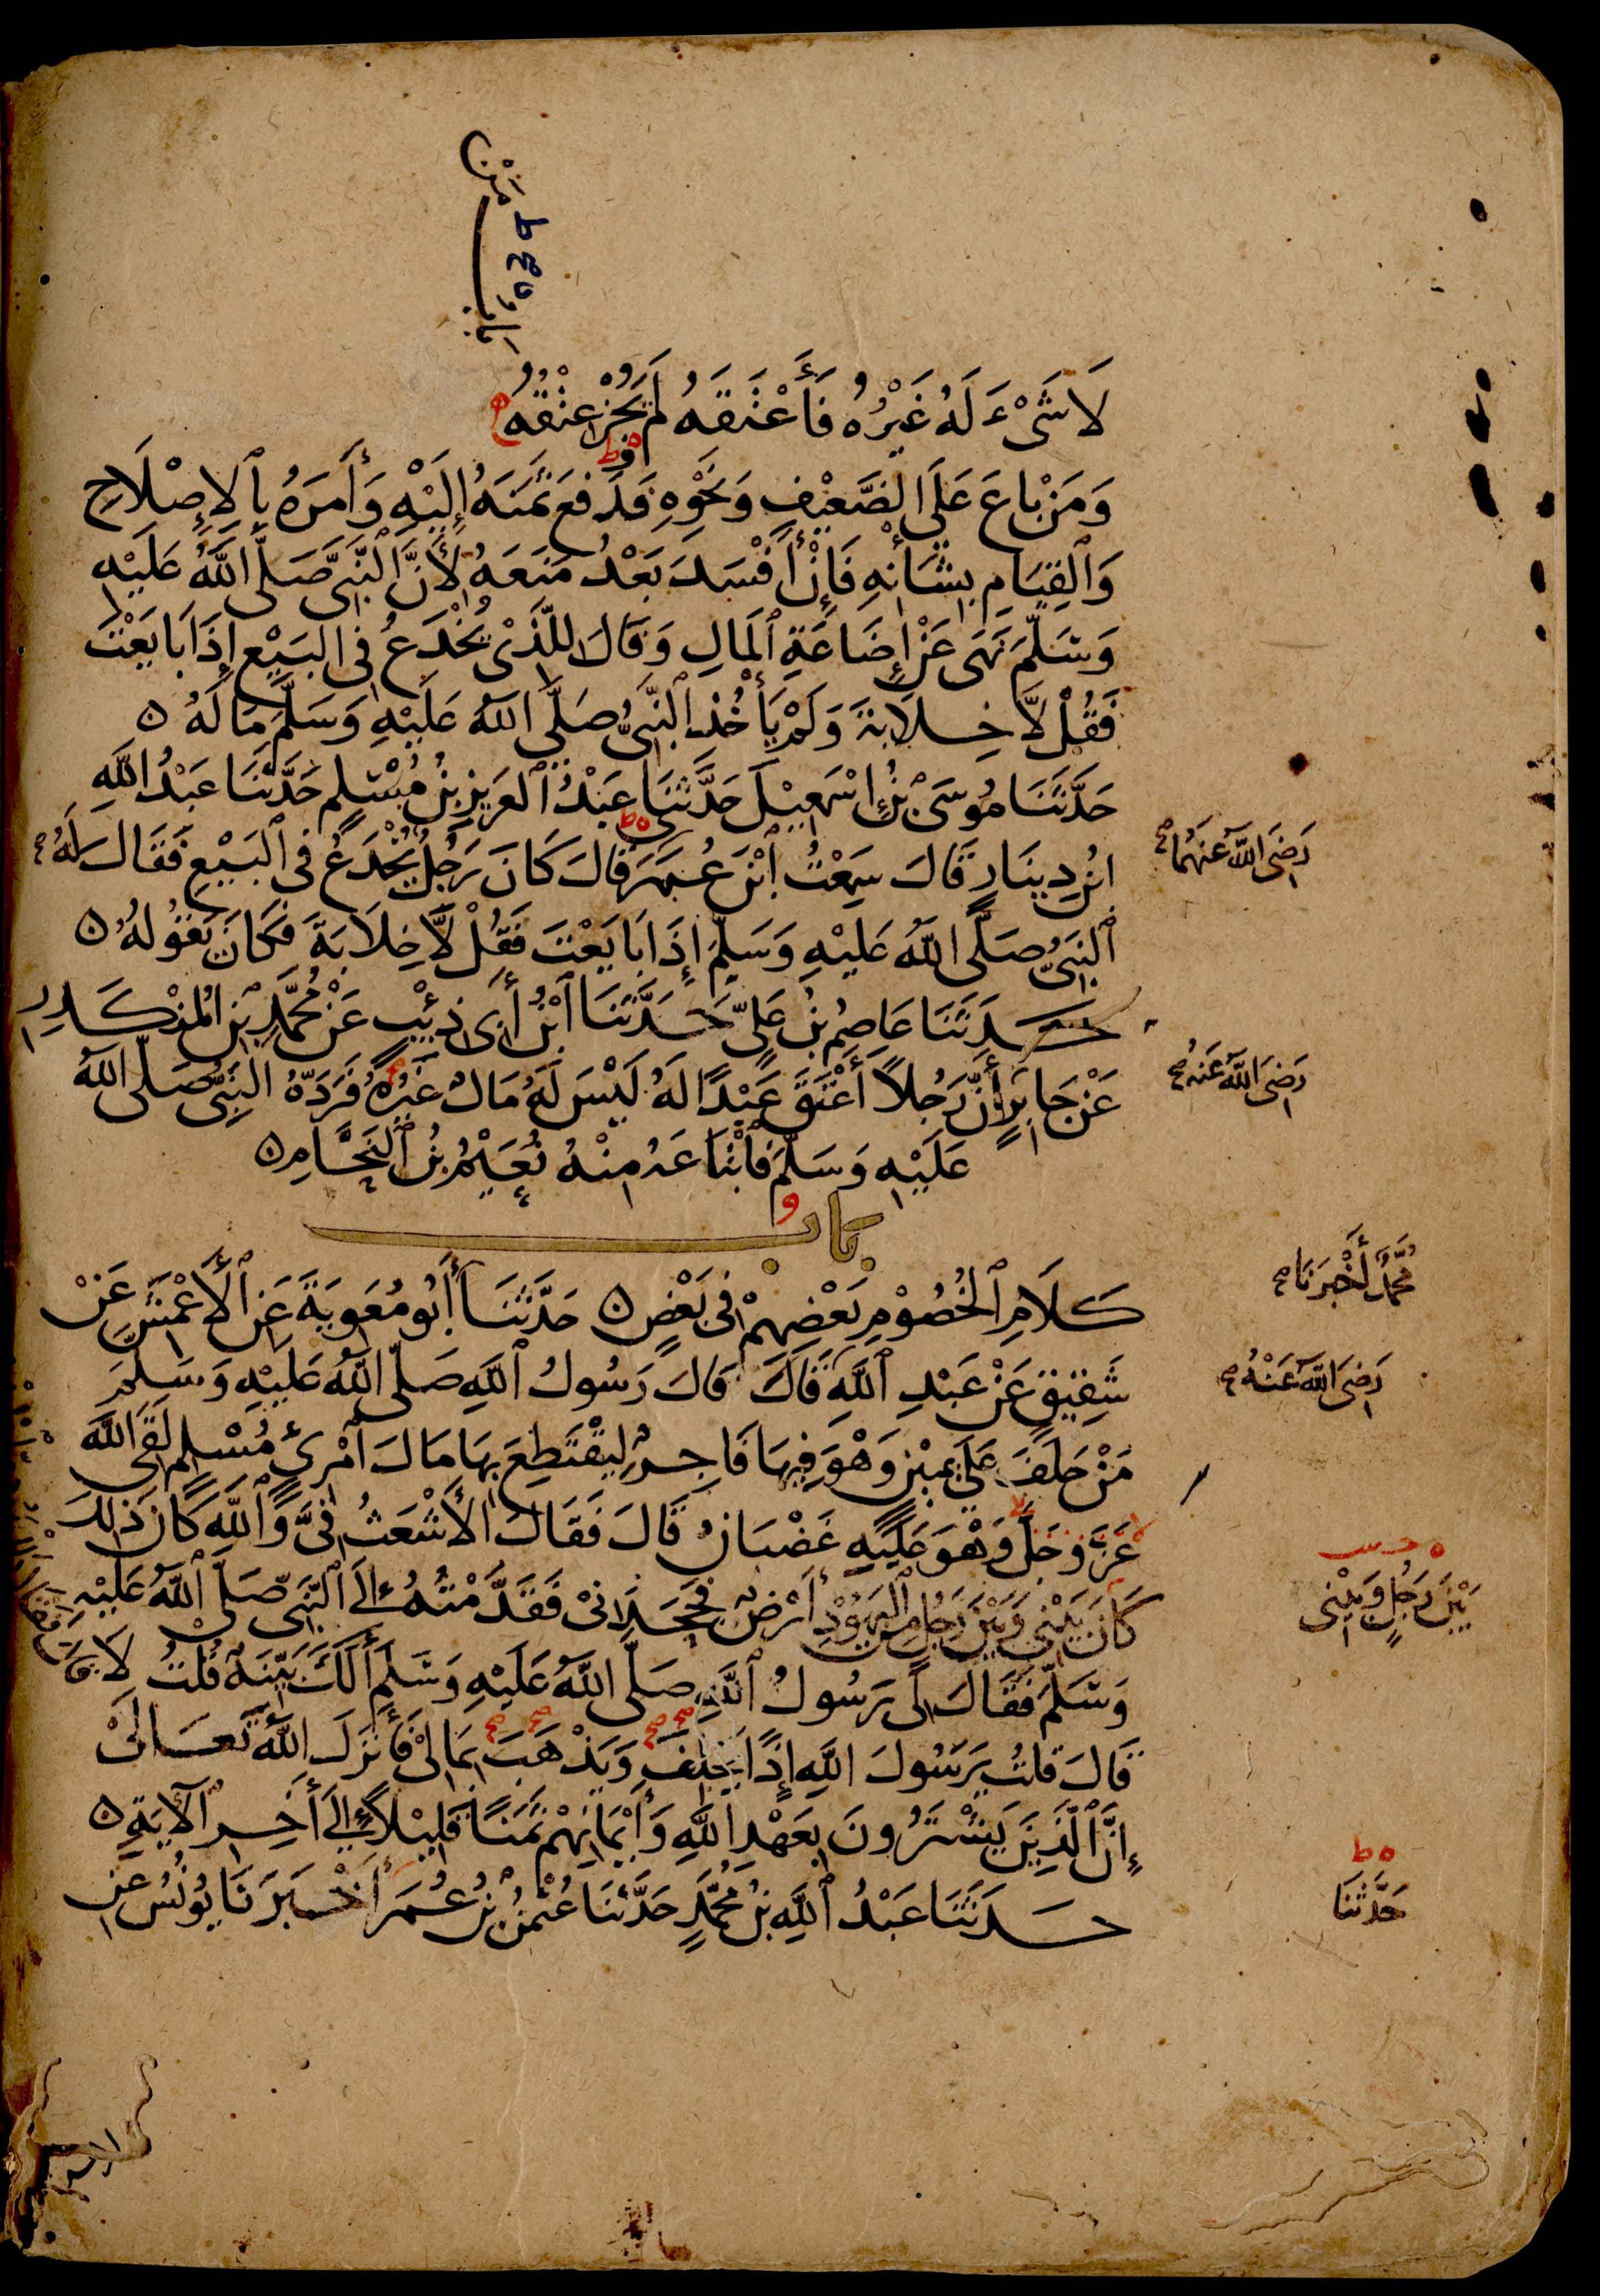 باب مَنْ
لَا شَىْءَ لَهُ غَيْرُهُ فَأَعْتَقَهُ لَمْ يَجُزْ عِتْقُهُ
وَمَنْ بَاعَ عَلَى الضَّعِيْفِ وَنَحْوِهِ فَدَفَعَ ثَمَنَهُ إِلَيْهِ وَأَمَرَهُ بِالإِصْلَاحِ
وَالْقِيَامِ بِشَأْنِهِ فَإِنْ أَفْسَدَ بَعْدُ مَنَعَهُ لِأَنَّ النَّبِىَّ صَلَّى اللَّهُ عَلَيْهِ
وَسَلَّمَ نَهَى عَنْ إِضَاعَةِ الْمَالِ وَقَالَ لِلَّذِىْ يُخْدَعُ فِى الْبَيْعِ إِذَا بَايَعْتَ
فَقُلْ لَّا خِلَابَةَ وَلَمْ يَأْخُذِ النَّبِىُّ صَلَّى اللهُ عَلَيْهِ وَسَلَّمَ مَالَهُ ه
حَدَّثَنَا مُوسَى بْنُ إِسْمٰعِيْلَ حَدَّثَنَا عَبْدُ الْعَزِيزِ بْنُ مُسْلِمٍ حَدَّثَنَا عَبْدُ اللَّهِ
ابْنُ دِينَارٍ قَالَ سَمِعْتُ ابْنَ عُمَرَ قَالَ كَانَ رَجُلٌ يُخْدَعُ فِى الْبَيْعِ فَقَالَ لَهُ
رَضِىَ اللَّهُ عَنْهُمَا
النَّبِىُّ صَلَّى اللَّهُ عَلَيْهِ وَسَلَّمَ إِذَا بَايَعْتَ فَقُلْ لَّا خِلَابَةَ فَكَانَ يَقُولُهُ ه
حَدَّثَنَا عَاصِمُ بْنُ عَلِىٍّ حَدَّثَنَا ابْنُ أَبِى ذِئْبٍ عَنْ مُحَمَّدِ بْنِ الْمُنْكَدِرِ
عَنْ جَابِرٍ أَنَّ رَجُلًا أَعْتَقَ عَبْدًا لَهُ لَيْسَ لَهُ مَالٌ غَيْرُهُ فَرَدَّهُ النَّبِىُّ صَلَّى اللَّهُ
رَضِىَ اللَّهُ عَنْهُ
عَلَيْهِ وَسَلَّمَ فَابْتَاعَهُ مِنْهُ نُعَيْمُ بْنُ النَّحَّامِ ه
باب
كَلَامِ الْخُصُوْمِ بَعْضِهِمْ فِى بَعْضٍ ه حَدَّثَنَا أَبُو مُعٰوِيَةَ عَنِ الْأَعْمَشِ عَنْ
مُحَمَّدٌ أَخْبَرَنَا
شَقِيْقٍ عَنْ عَبْدِ اللَّهِ قَالَ قَالَ رَسُولُ اللَّهِ صَلَّى اللَّهُ عَلَيْهِ وَسَلَّمَ
رَضِىَ اللَّهُ عَنْهُ
مَنْ حَلَفَ عَلَى يَمِيْنٍ وَهْوَ فِيهَا فَاجِرٌ لِيَقْتَطِعَ بِهَا مَالَ امْرِئٍ مُسْلِمٍ لَقِىَ اللَّهَ
عَزَّ وَجَلَّ وَهْوَ عَلَيْهِ غَضْبَانُ قَالَ فَقَالَ الْأَشْعَثُ فِىَّ وَاللَّهِ كَانَ ذٰلِكَ
كَانَ بَيْنِى وَبَيْنَ رَجُلٍ مِنَ الْيَهُوْدِ أَرْضٌ فَجَحَدَنِىْ فَقَدَّمْتُهُ إِلَى النَّبِىِّ صَلَّى اللَّهُ عَلَيْهِ
بَيْنَ رَجُلٍ وَبَيْنِى
وَسَلَّمَ فَقَالَ لِى رَسُولُ اللَّهِ صَلَّى اللَّهُ عَلَيْهِ وَسَلَّمَ أَلَكَ بَيِّنَةٌ قُلْتُ لَا
قَالَ قُلْتُ يٰرَسُولَ اللَّهِ إِذًا يَحْلِفَ وَيَذْهَبَ بِمَالِىْ فَأَنْزَلَ اللَّهُ تَعَالَىْ
إِنَّ الَّذِيْنَ يَشْتَرُونَ بِعَهْدِ اللَّهِ وَأَيْمَانِهِمْ ثَمَنًا قَلِيْلًا إِلَى أٰخِرِ الْآيَةِ ه
حَدَّثَنَا عَبْدُ اللَّهِ بْنُ مُحَمَّدٍ حَدَّثَنَا عُثْمٰنُ بْنُ عُمَرَ أَخْبَرَنَا يُونُسُ عَنِ
حَدَّثَنَا